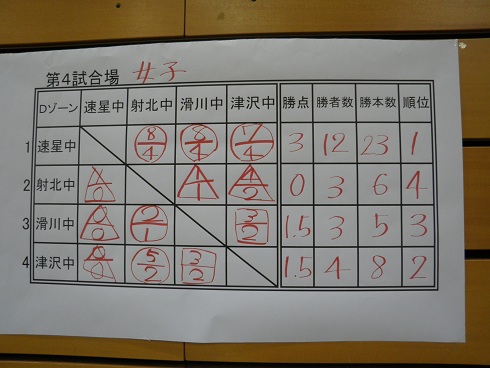 第4試合場 女子
Dゾーン 速星中 射北中 滑川中 津沢中 勝点 勝者数 勝本数 順位
1 速星中 8/4 8/4 7/4 3 12 23 1
2 射北中 1/0 1/1 4/2 0 3 6 4
3 滑川中 0/0 2/1 3/2 1.5 3 5 3
4 津沢中 0/0 5/2 3/2 1.5 4 8 2